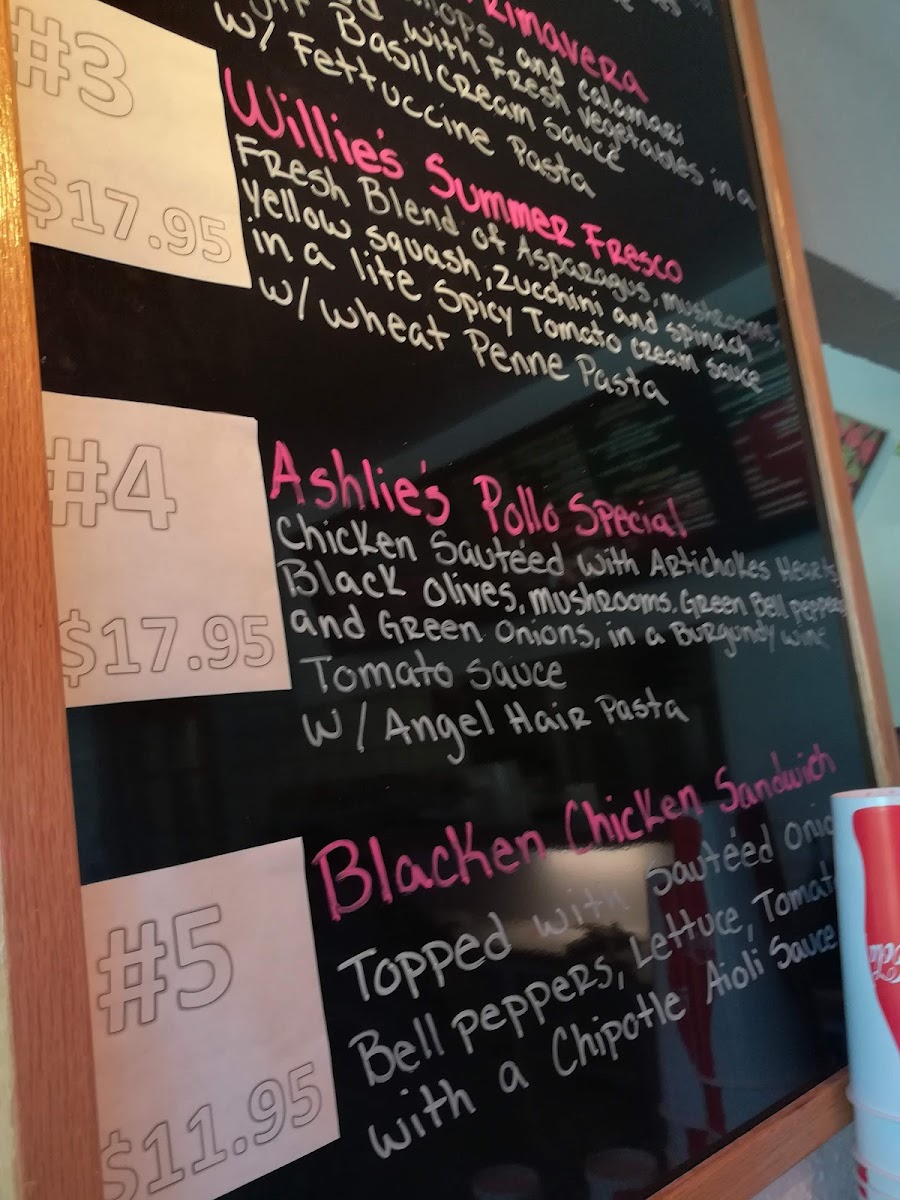 #3
$17.95
Primavera
and calamari
with Fresh vegetables in a
Basil cream sauce
w/ Fettuccine Pasta
Willie's Summer Fresco
Fresh Blend of Asparagus, mushrooms,
yellow squash, zucchini and spinach
in a lite Spicy Tomato cream sauce
w/ wheat Penne Pasta
#4
$17.95
Ashlie's Pollo Special
Chicken Sauteéd with Artichokes Hearts
Black Olives, Mushrooms. Green Bell peppers
and Green Onions, in a Burgundy wine
Tomato sauce
W/ Angel Hair Pasta
#5
$11.95
Blacken Chicken Sandwich
Topped with sauteéd
Bell peppers, Lettuce,
with a Chipotle Aioli Sauce